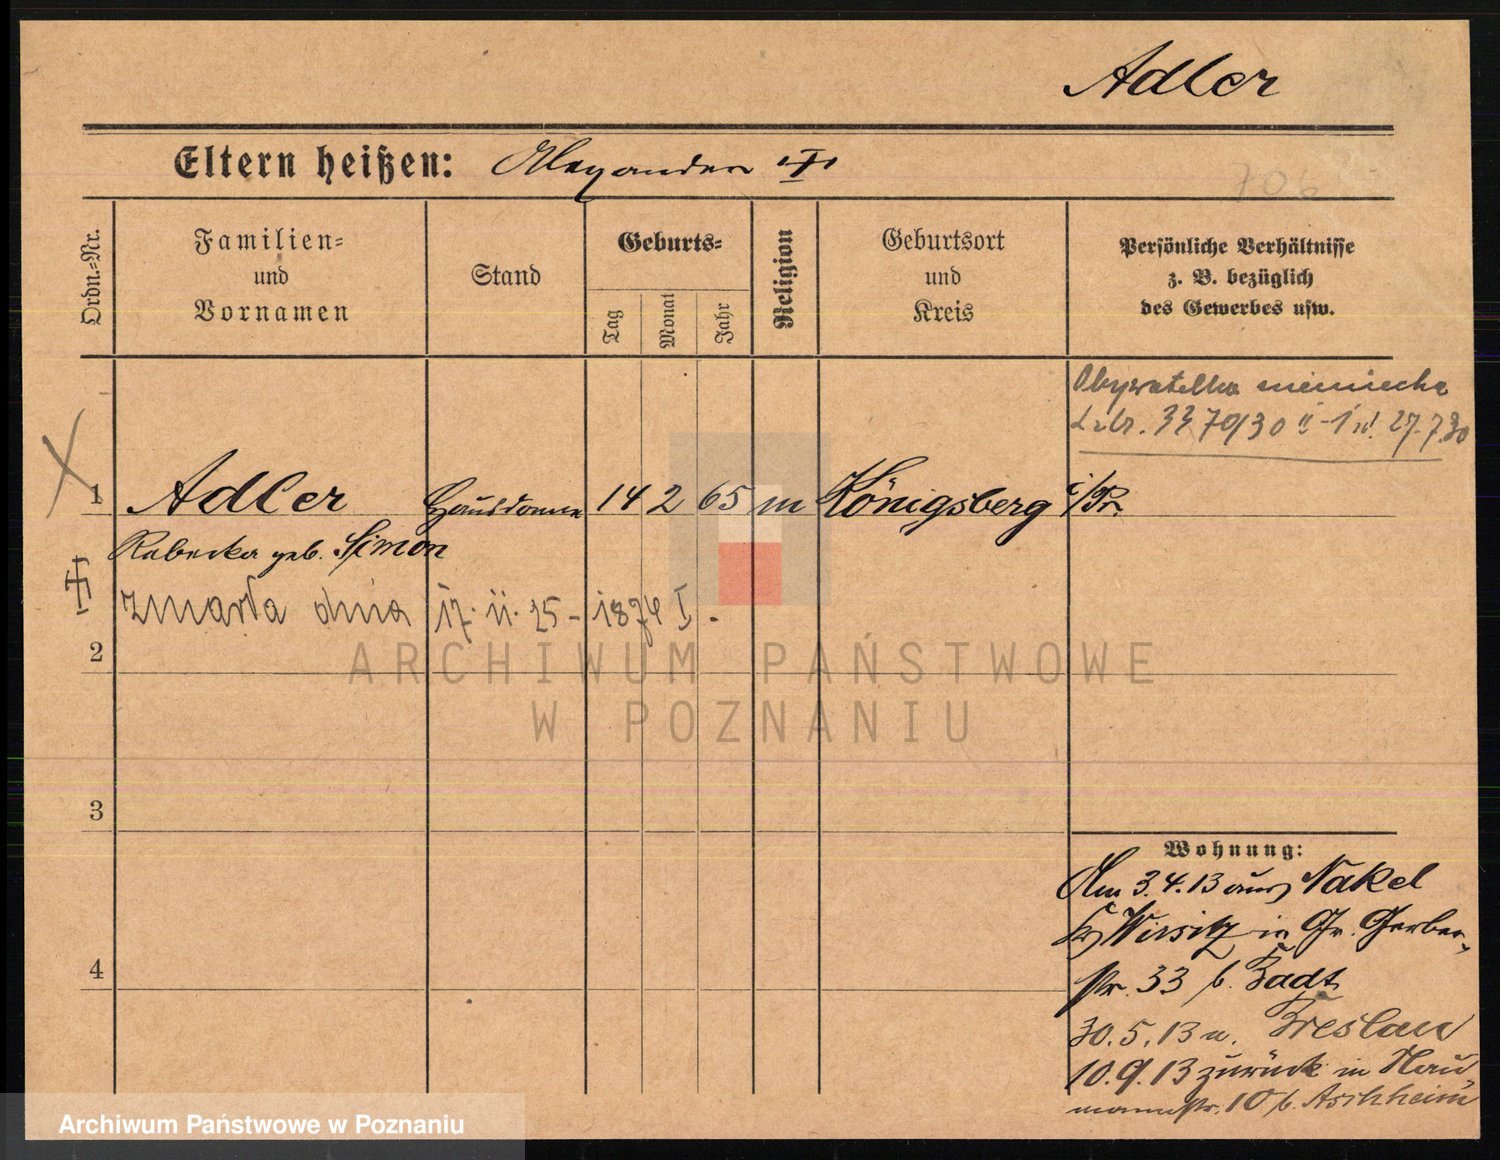 Adler
Eltern heißen: Alexander
706
Ordn.=Nr.
Familien=
und
Vornamen
Stand
Geburts=
Tag
Monat
Jahr
Religion
Geburtsort
und
Kreis
Persönliche Verhältnisse
z. B. bezüglich
des Gewerbes usw.
Obywatelka niemiecka
3370/30 27.7.30
1 Adler 14 2 65 m Königsberg i/Pr.
Rebecka geb. Simon
zmarła dnia 17. II. 25 - 1874 I.
2
3
4
Wohnung:
Am 3.4.13 aus Nakel
Kr Wirsitz in Gr. Gerber-
str. 33 b. Badt
30.5.13 n. Breslau
10.9.13 zurück in Nau
mannstr. 10 b. Aschheim
ARCHIWUM PAŃSTWOWE
W POZNANIU
Archiwum Państwowe w Poznaniu